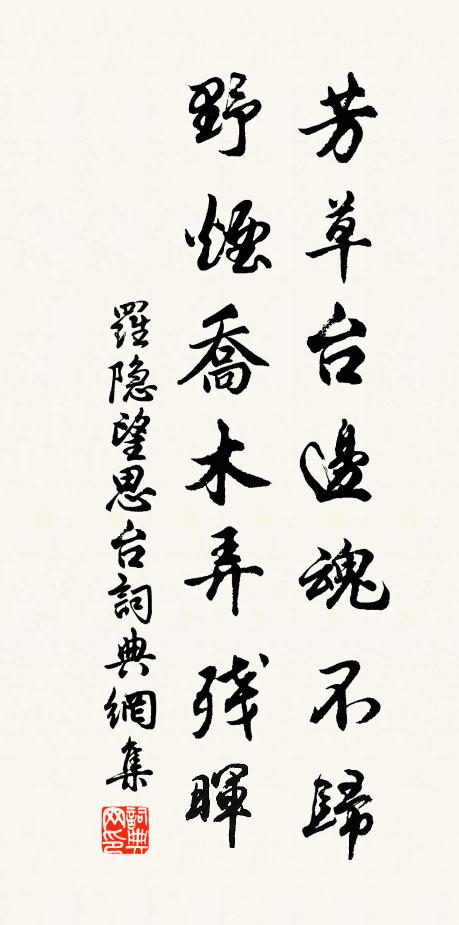 芳草台邊魂不歸
野煙喬木弄残暉
羅隐望思台詞典網集
詞典网印